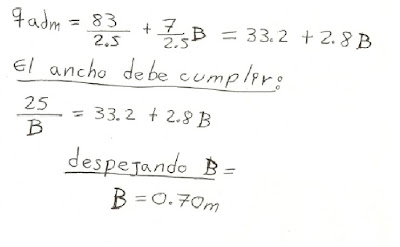 q adm = 83/2.5 + 7/2.5 B = 33.2 + 2.8 B
El ancho debe cumplir:
25/B = 33.2 + 2.8 B
despejando B =
B = 0.70m